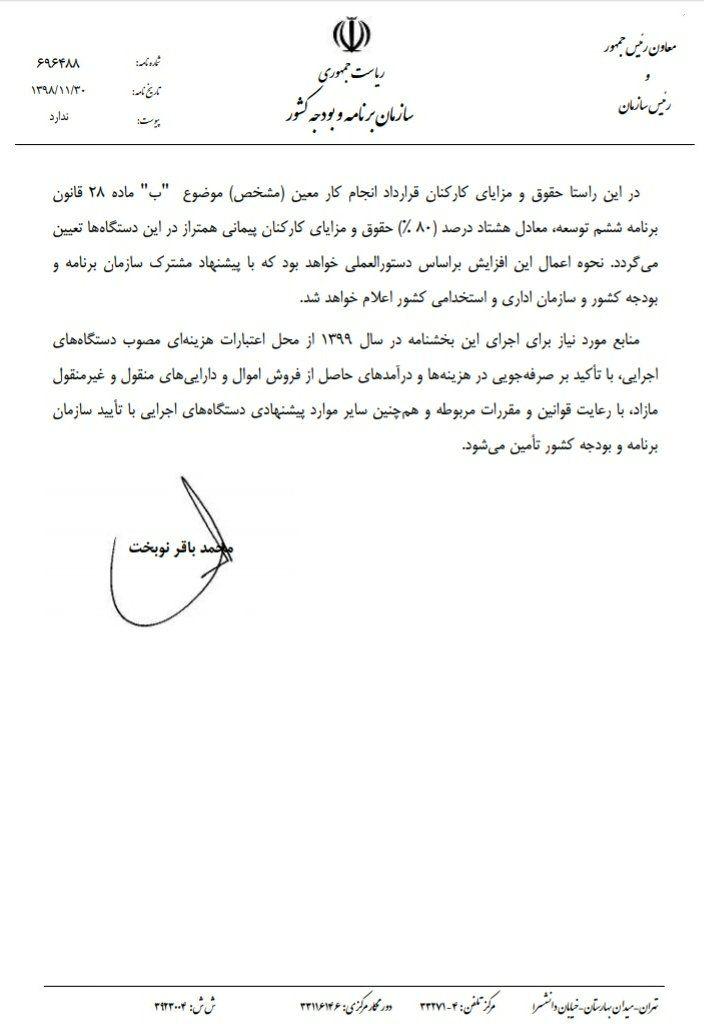 معاون رئیس جمهور
و
رئیس سازمان
ریاست جمهوری
سازمان برنامه و بودجه کشور
شماره نامه: ۶۹۶۴۸۸
تاریخ نامه: ۱۳۹۸/۱۱/۳۰
پیوست: ندارد
در این راستا حقوق و مزایای کارکنان قرارداد انجام کار معین (مشخص) موضوع "ب" ماده ۲۸ قانون
برنامه ششم توسعه، معادل هشتاد درصد (۸۰ ٪) حقوق و مزایای کارکنان پیمانی همتراز در این دستگاه‌ها تعیین
می‌گردد. نحوه اعمال این افزایش براساس دستورالعملی خواهد بود که با پیشنهاد مشترک سازمان برنامه و
بودجه کشور و سازمان اداری و استخدامی کشور اعلام خواهد شد.
منابع مورد نیاز برای اجرای این بخشنامه در سال ۱۳۹۹ از محل اعتبارات هزینه‌ای مصوب دستگاه‌های
اجرایی، با تأکید بر صرفه‌جویی در هزینه‌ها و درآمدهای حاصل از فروش اموال و دارایی‌های منقول و غیرمنقول
مازاد، با رعایت قوانین و مقررات مربوطه و هم‌چنین سایر موارد پیشنهادی دستگاه‌های اجرایی با تأیید سازمان
برنامه و بودجه کشور تأمین می‌شود.
محمد باقر نوبخت
تهران-میدان بهارستان-خیابان دانشسرا مرکز تلفن: ۴-۳۳۲۷۱ دورنگار مرکزی: ۳۳۱۱۶۱۴۶ ش ش: ۳۹۲۳۰۰۴